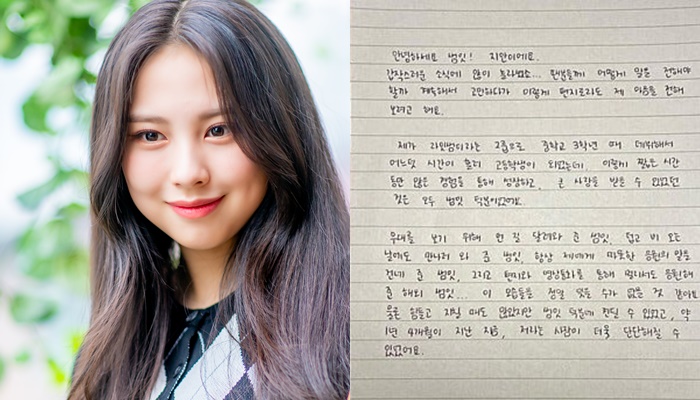 안녕하세요 범잇! 지안이에요.
갑작스러운 소식에 많이 놀라셨죠... 팬분들께 어떻게 말을 전해야
할까 계속해서 고민하다가 이렇게 편지로라도 제 마음을 전해
보려고 해요.
제가 라임벌디라는 그룹으로 중학교 3학년 때 데뷔해서
어느덧 시간이 흘러 고등학생이 되었는데, 이렇게 짧은 시간
동안 많은 경험을 통해 성장하고, 큰 사랑을 받을 수 있었던
것은 모두 범잇 덕분이었어요.
무대를 보기 위해 먼 길 달려와 준 범잇, 덥고 비 오는
날에도 만나러 와 준 범잇, 항상 제에게 따뜻한 응원의 말을
건네 준 범잇, 그리고 편지와 영상통화를 통해 멀리서도 응원해
준 해외 범잇... 이 모습들을 정말 잊을 수가 없을 것 같아요
물론 힘들고 지칠 때도 많았지만 범잇 덕분에 견딜 수 있었고, 약
1년 4개월이 지난 지금, 저라는 사람이 더욱 단단해질 수
있었어요.